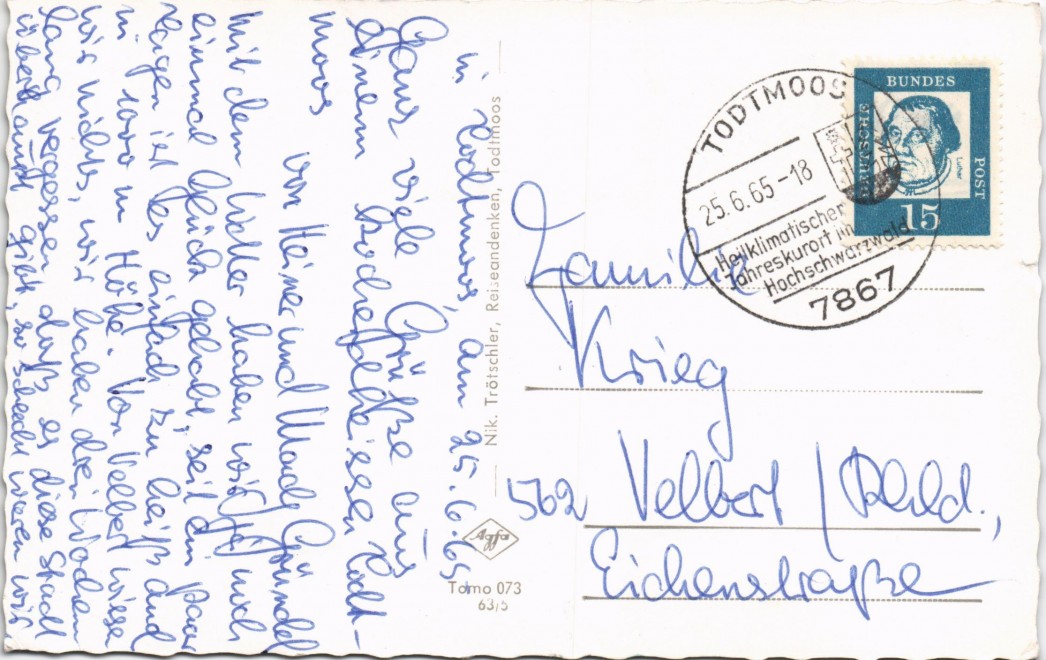 in Todtmoos, am 25.6.65
Ganz viele Grüße aus
einem kochendheissen Todt-
moos
von Heiner und Gründel
Mit dem Wetter haben wir ja noch
einmal Glück gehabt, seit ein paar
Tagen ist es einfach zu heiß und
in 1000 m Höhe. Von Velbert wissen
wir nichts, wir haben drei Wochen
lang vergessen, daß es diese Stadt
überhaupt gibt, so waren wir
Nik. Trötschler, Reiseandenken, Todtmoos
Agfa
Tomo 073
63/5
TODTMOOS
25.6.65-18
Heilklimatischer
Jahreskurort im
Hochschwarzwald
7867
DEUTSCHE
BUNDES
POST
Luther
15
Familie
Krieg
562 Velbert / Rhld.,
Eichenstraße